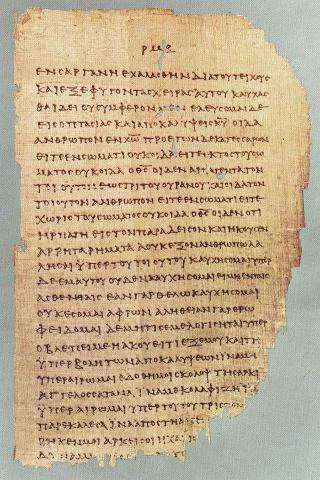 ΕΝ ΣΑΡΓΑΝΗ ΕΧΑΛΑΣΘΗΝ ΔΙΑ ΤΟΥ ΤΕΙΧΟΥΣ
ΚΑΙ ΕΞΕΦΥΓΟΝ ΤΑΣ ΧΕΙΡΑΣ ΑΥΤΟΥ ΚΑΥΧΑΣ
ΘΑΙ ΔΕΙ ΟΥ ΣΥΜΦΕΡΟΝ ΜΕΝ ΕΛΕΥΣΟΜΑΙ ΔΕ
ΕΙΣ ΟΠΤΑΣΙΑΣ ΚΑΙ ΑΠΟΚΑΛΥΨΕΙΣ Κ̅Υ̅ ΟΙΔΑ
ΑΝΘΡΩΠΟΝ ΕΝ Χ̅Ω̅ ΠΡΟ ΕΤΩΝ ΔΕΚΑΤΕΣΣΑΡΩΝ
ΕΙΤΕ ΕΝ ΣΩΜΑΤΙ ΟΥΚ ΟΙΔΑ ΕΙΤΕ ΕΚΤΟΣ ΤΟΥ ΣΩ
ΜΑΤΟΣ ΟΥΚ ΟΙΔΑ Ο Θ̅Σ̅ ΟΙΔΕΝ ΑΡΠΑΓΕΝΤΑ ΤΟΝ
ΤΟΙΟΥΤΟΝ ΕΩΣ ΤΡΙΤΟΥ ΟΥΡΑΝΟΥ ΚΑΙ ΟΙΔΑ ΤΟΝ
ΤΟΙΟΥΤΟΝ ΑΝΘΡΩΠΟΝ ΕΙΤΕ ΕΝ ΣΩΜΑΤΙ ΕΙΤΕ
ΧΩΡΙΣ ΤΟΥ ΣΩΜΑΤΟΣ ΟΥΚ ΟΙΔΑ Ο Θ̅Σ̅ ΟΙΔΕΝ ΟΤΙ
ΗΡΠΑΓΗ ΕΙΣ ΤΟΝ ΠΑΡΑΔΕΙΣΟΝ ΚΑΙ ΗΚΟΥΣΕΝ
ΑΡΡΗΤΑ ΡΗΜΑΤΑ Α ΟΥΚ ΕΞΟΝ ΑΝΘΡΩΠΩ ΛΑ
ΛΗΣΑΙ ΥΠΕΡ ΤΟΥ ΤΟΙΟΥΤΟΥ ΚΑΥΧΗΣΟΜΑΙ ΥΠΕΡ
ΔΕ ΕΜΑΥΤΟΥ ΟΥΔΕΝ ΚΑΥΧΗΣΟΜΑΙ ΕΙ ΜΗ ΕΝ ΤΑΙΣ
ΑΣΘΕΝΕΙΑΙΣ ΕΑΝ ΓΑΡ ΘΕΛΩ ΚΑΥΧΗΣΟΜΑΙ
ΟΥΚ ΕΣΟΜΑΙ ΑΦΡΩΝ ΑΛΗΘΕΙΑΝ ΓΑΡ ΕΡΩ
ΦΕΙΔΟΜΑΙ ΔΕ ΜΗ ΤΙΣ ΕΜΕ ΛΟΓΙΣΗΤΑΙ ΥΠΕΡ
Ο ΒΛΕΠΕΙ ΜΕ Η ΑΚΟΥΕΙ ΤΙ ΕΞ ΕΜΟΥ ΚΑΙ ΤΗ
ΥΠΕΡΒΟΛΗ ΤΩΝ ΑΠΟΚΑΛΥΨΕΩΝ ΙΝΑ ΜΗ
ΥΠΕΡΑΙΡΩΜΑΙ ΕΔΟΘΗ ΜΟΙ ΣΚΟΛΟΨ ΤΗ ΣΑΡΚΙ
ΑΓΓΕΛΟΣ ΣΑΤΑΝΑ ΙΝΑ ΜΕ ΚΟΛΑΦΙΖΗ
ΥΠΕΡΑΙΡΩΜΑΙ ΥΠΕΡ ΤΟΥΤΟΥ ΤΡΙΣ ΤΟΝ
ΠΑΡΕΚΑΛΕΣΑ ΙΝΑ ΑΠΟΣΤΗ
ΡΗΚΕΝ ΜΟΙ ΑΡΚΕΙ ΣΟΙ Η ΧΑΡΙΣ